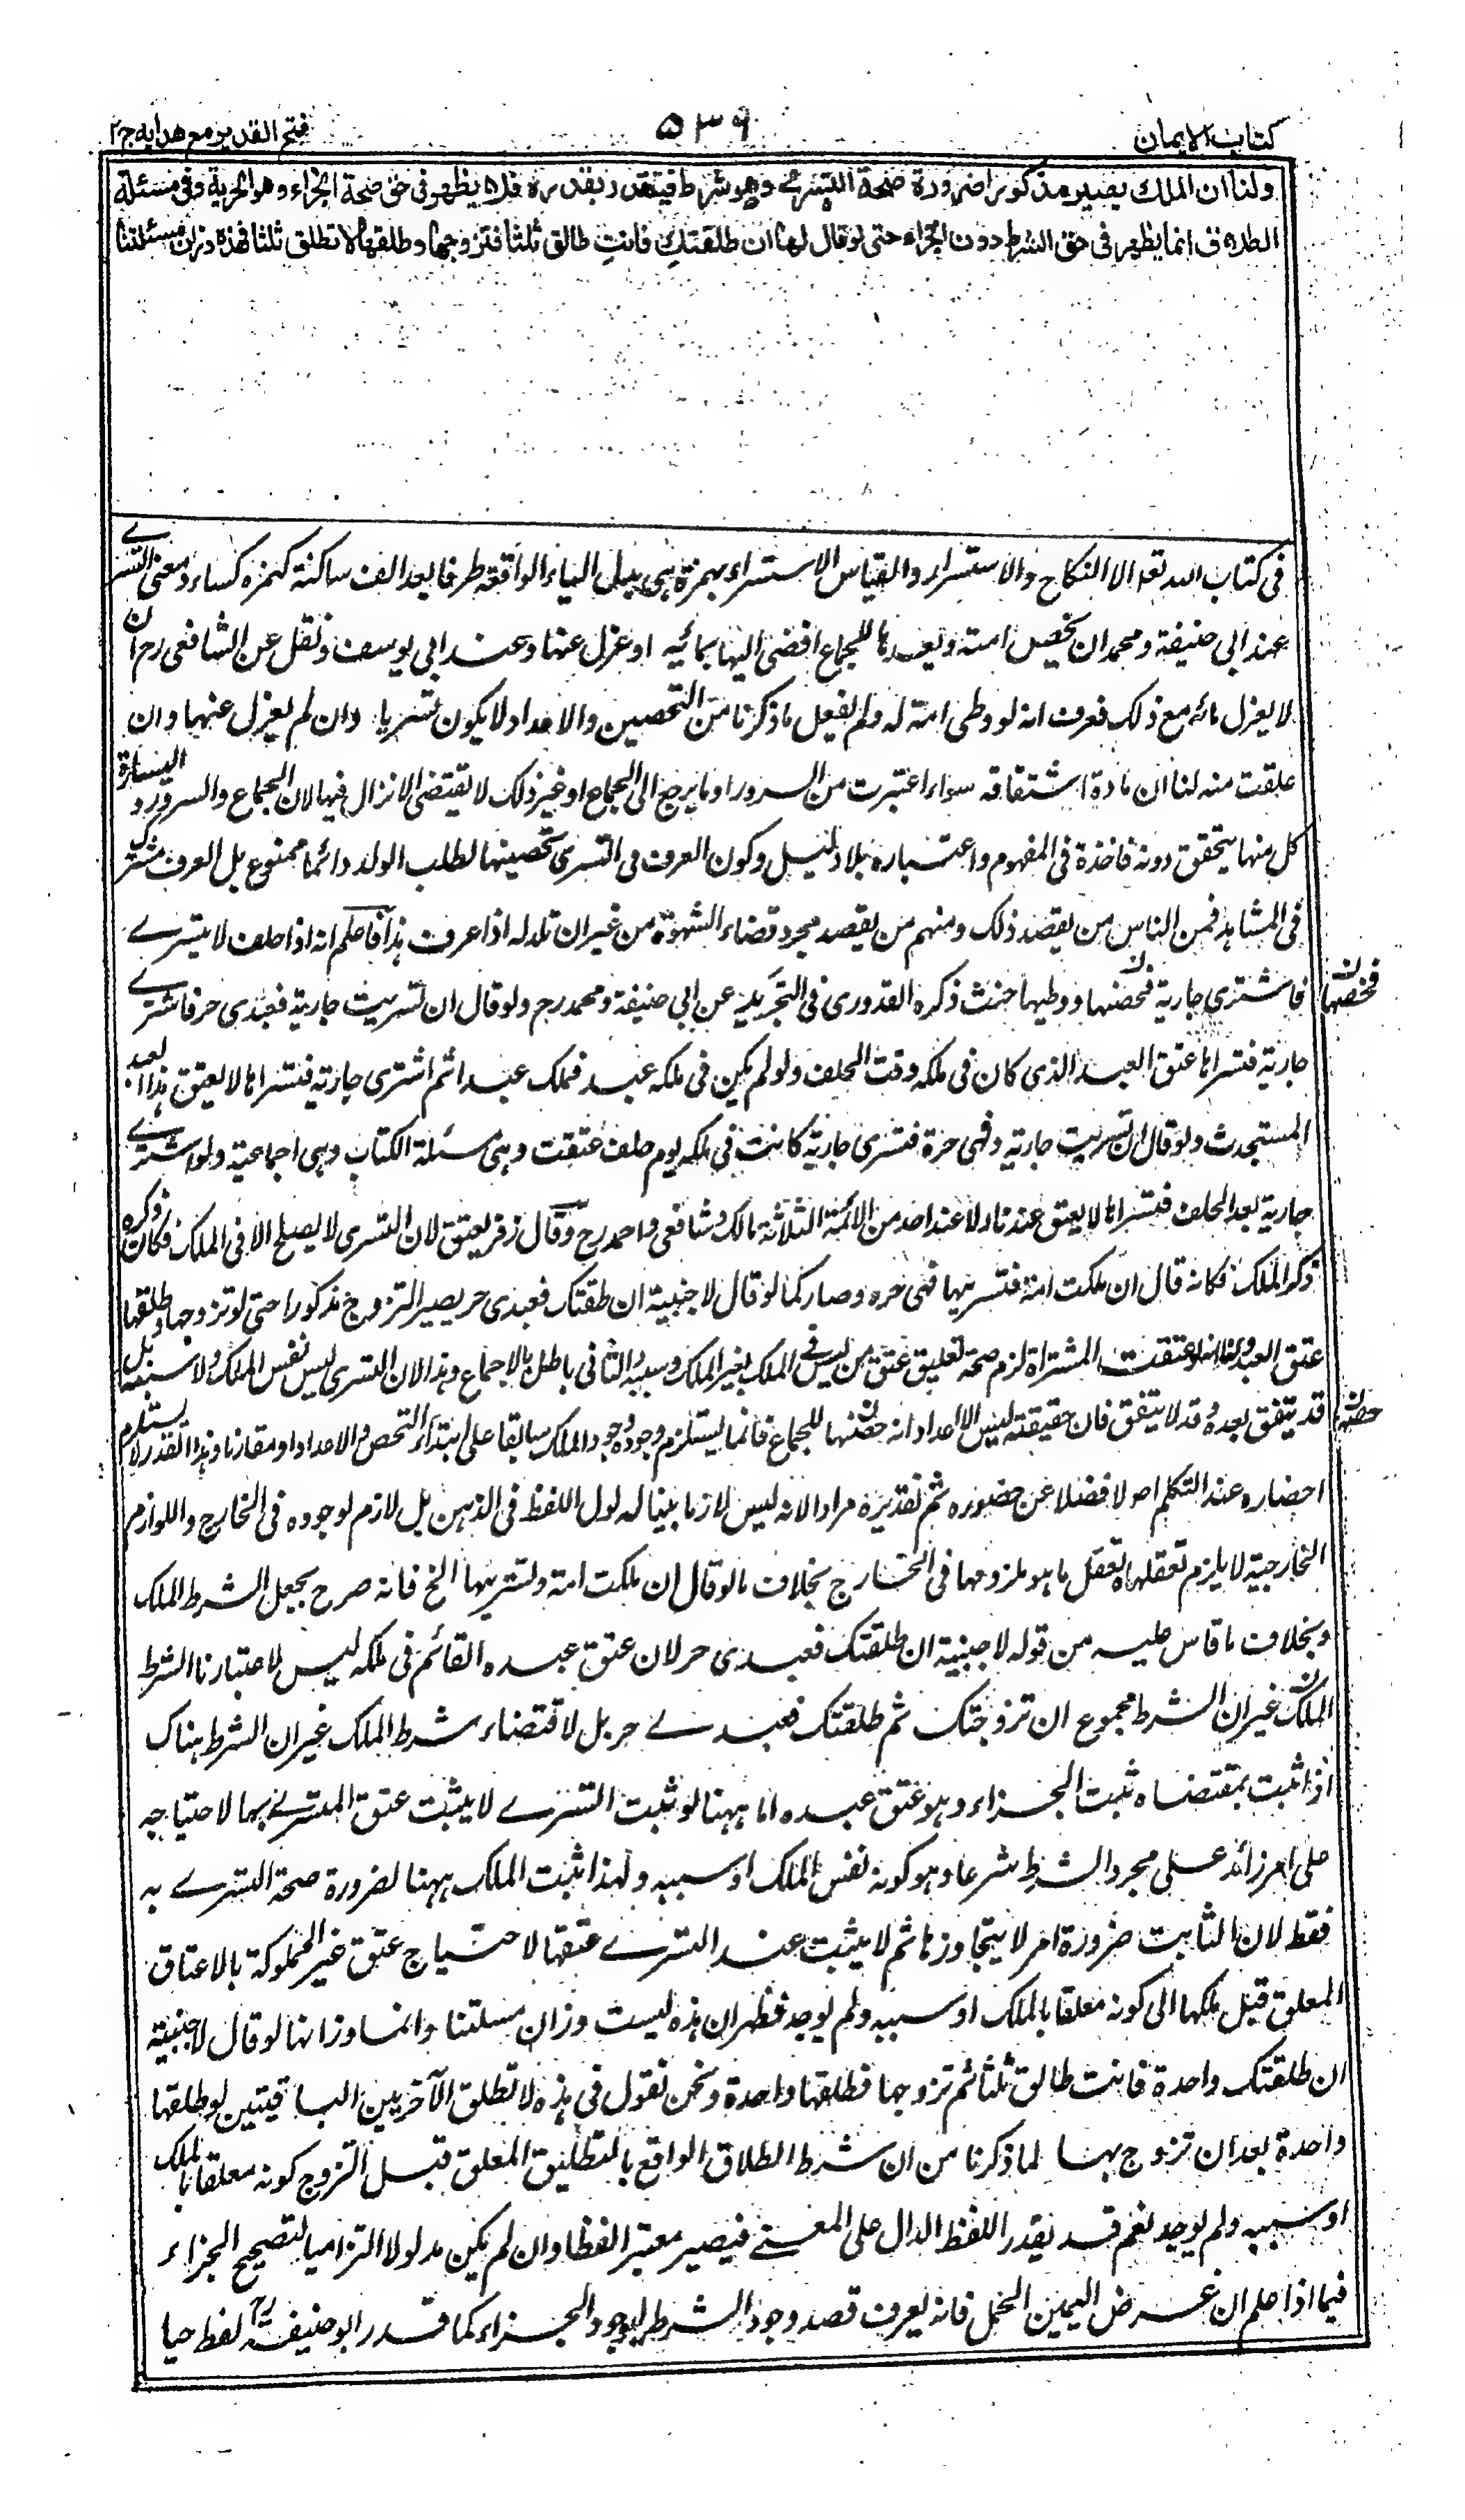 كتاب الايمان ۵۳۶ فتح القدير مع هدايه ج۲
ولنا ان الملك يصير مذكورا ضرورة صحة التسري وهو شرط فيتقدر بقدره فلا يظهر في حق صحة الجزاء وهو الحرية وفي مسئلة
الطلاق انما يظهر في حق الشرط دون الجزاء حتى لو قال لها ان طلقتك فانت طالق ثلثا فتزوجها وطلقها لا تطلق ثلثا فهذه وزان مسئلتنا
في كتاب الله تعه الا النكاح والاستسرار والقياس الاستسراء بهمزة هي بدل الياء الواقعة طرفا بعد الف ساكنة كهمزة كساء ومعنى التسرے
عند ابي حنيفة ومحمد ان يحصن امته ويعدها للجماع افضى اليها بمائه او عزل عنها وعند ابي يوسف ونقل عن الشافعي رح ان
لا يعزل مائه مع ذلك فعرف انه لو وطى امة له ولم يفعل ما ذكرنا من التحصين والاعداد لا يكون تسريا وان لم يعزل عنها وان
علقت منه لنا ان مادة اشتقاقه سواء اعتبرت من السرور او ما يرجع الى الجماع او غير ذلك لا تقتضى الانزال فيها لان الجماع والسرور و السيادة
كل منها يتحقق دونه فاخذه في المفهوم واعتباره بلا دليل وكون العرف في التسرى تحصينها لطلب الولد دائما ممنوع بل العرف مشترك
في المشاهد فمن الناس من يقصد ذلك ومنهم من يقصد مجرد قضاء الشهوة من غير ان تلد له اذا عرف هذا فاعلم انه اذا حلف لا يتسرے
فاشترى جارية فحصنها ووطيها حنث ذكره القدورى في التجريد عن ابي حنيفة ومحمد رح ولو قال ان تسريت جارية فعبدى حر فاشترے
جارية فتسراها عتق العبد الذي كان في ملكه وقت الحلف ولو لم يكن في ملكه عبد فملك عبدا ثم اشترى جارية فتسراها لا يعتق هذا العبد
المستحدث ولو قال ان تسريت جارية فهى حرة فتسرى جارية كانت في ملكه يوم حلف عتقت وهى مسئلة الكتاب وهى اجماعية ولو اشترے
جارية بعد الحلف فتسراها لا يعتق عندنا ولا عند احد من الائمة الثلاثة مالك وشافعى واحمد رح وقال زفر يعتق لان التسرى لا يصلح الا في الملك فكان ذكره
ذكر الملك فكانه قال ان ملكت امة فتسريتها فهى حره وصار كما لو قال لاجنبية ان طلقتك فعبدى حر يصير التزوج مذكورا حتى لو تزوجها وطلقها
عتق العبد ولنا انه لو عتقت المشتراة لزم صحة تعليق عتق من ليس في الملك بغير الملك وسببه والثانى باطل بالاجماع وهذا لان التسرى ليس نفس الملك ولا سببه بل
قد يتفق بعده وقد لا يتفق فان حقيقته ليس الا اعداد انه حصنها للجماع فانما يستلزم وجوده وجود الملك سابقا على ابتداء التحصن والاعداد او مقارنا وهذا القدر لا يستلزم
احضاره عند التكلم اصلا فضلا عن حضوره ثم تقديره مرادا لانه ليس لازما بينا لمدلول اللفظ في الذهن بل لازم لوجوده في الخارج واللوازم
الخارجية لا يلزم تعقلها تعقل ما هو ملزومها في الخارج بخلاف ما لو قال ان ملكت امة وتسريتها الخ فانه صرح بجعل الشرط الملك
وبخلاف ما قاس عليه من قوله لاجنبية ان طلقتك فعبدى حر لان عتق عبده القائم في ملكه ليس لاعتبارنا الشرط
الملك غير ان الشرط مجموع ان تزوجتك ثم طلقتك فعبدے حر بل لاقتضاء شرط الملك غير ان الشرط هناك
اذا ثبت بمقتضاه ثبت الجزاء وهو عتق عبده اما ههنا لو ثبت التسرے لا يثبت عتق المتسرے بها لاحتياجه
على امر زائد على مجرد الشرط شرعا وهو كونه نفس الملك او سببه ولهذا ثبت الملك ههنا لضرورة صحة التسرے به
فقط لان الثابت ضرورة امر لا يتجاوزها ثم لا يثبت عند التسرے عتقها لاحتياج عتق غير المملوكة بالاعتاق
المعلق قبل ملكها الى كونه معلقا بالملك او سببه ولم يوجد فظهر ان هذه ليست وزان مسلتنا وانما وزانها لو قال لاجنبية
ان طلقتك واحدة فانت طالق ثلثا ثم تزوجها فطلقها واحدة ونحن نقول في هذه لا تطلق الآخريين الباقيتين لو طلقها
واحدة بعد ان تزوج بها لما ذكرنا من ان شرط الطلاق الواقع بالتطليق المعلق قبل التزوج كونه معلقا بالملك
او سببه ولم يوجد نعم قد يقدر اللفظ الدال على المعنے فيصير معتبر الفظا وان لم يكن مدلولا التزاميا لتصحيح الجزاء
فيما اذا علم ان غرض اليمين الحمل فانه يعرف قصد وجود الشرط لوجود الجزاء كما قدر ابو حنيفة رح لفظ حيا
فحصنها
حصنه